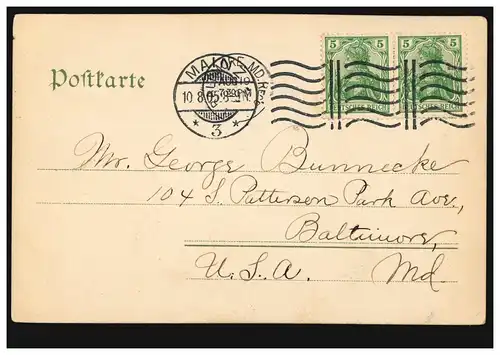 5 5 5 5
DEUTSCHES REICH
MAINZ
10.8.05.8-9N.
* 3 *
Postkarte
Mr. George Bunnecke
104 S. Patterson Park Ave.,
Baltimore,
U.S.A. Md.